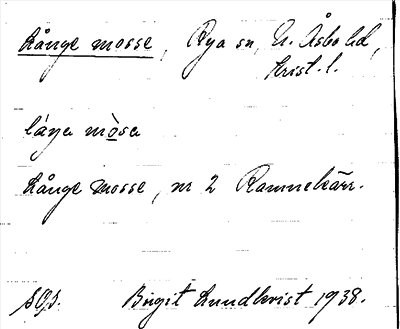 Långe mosse, Rya sn, N. Åsbo hd,
Krist. l.
låŋa mòsa
Långe mosse, nr 2 Rammekärr.
SOJ. Birgit Lundkvist 1938.